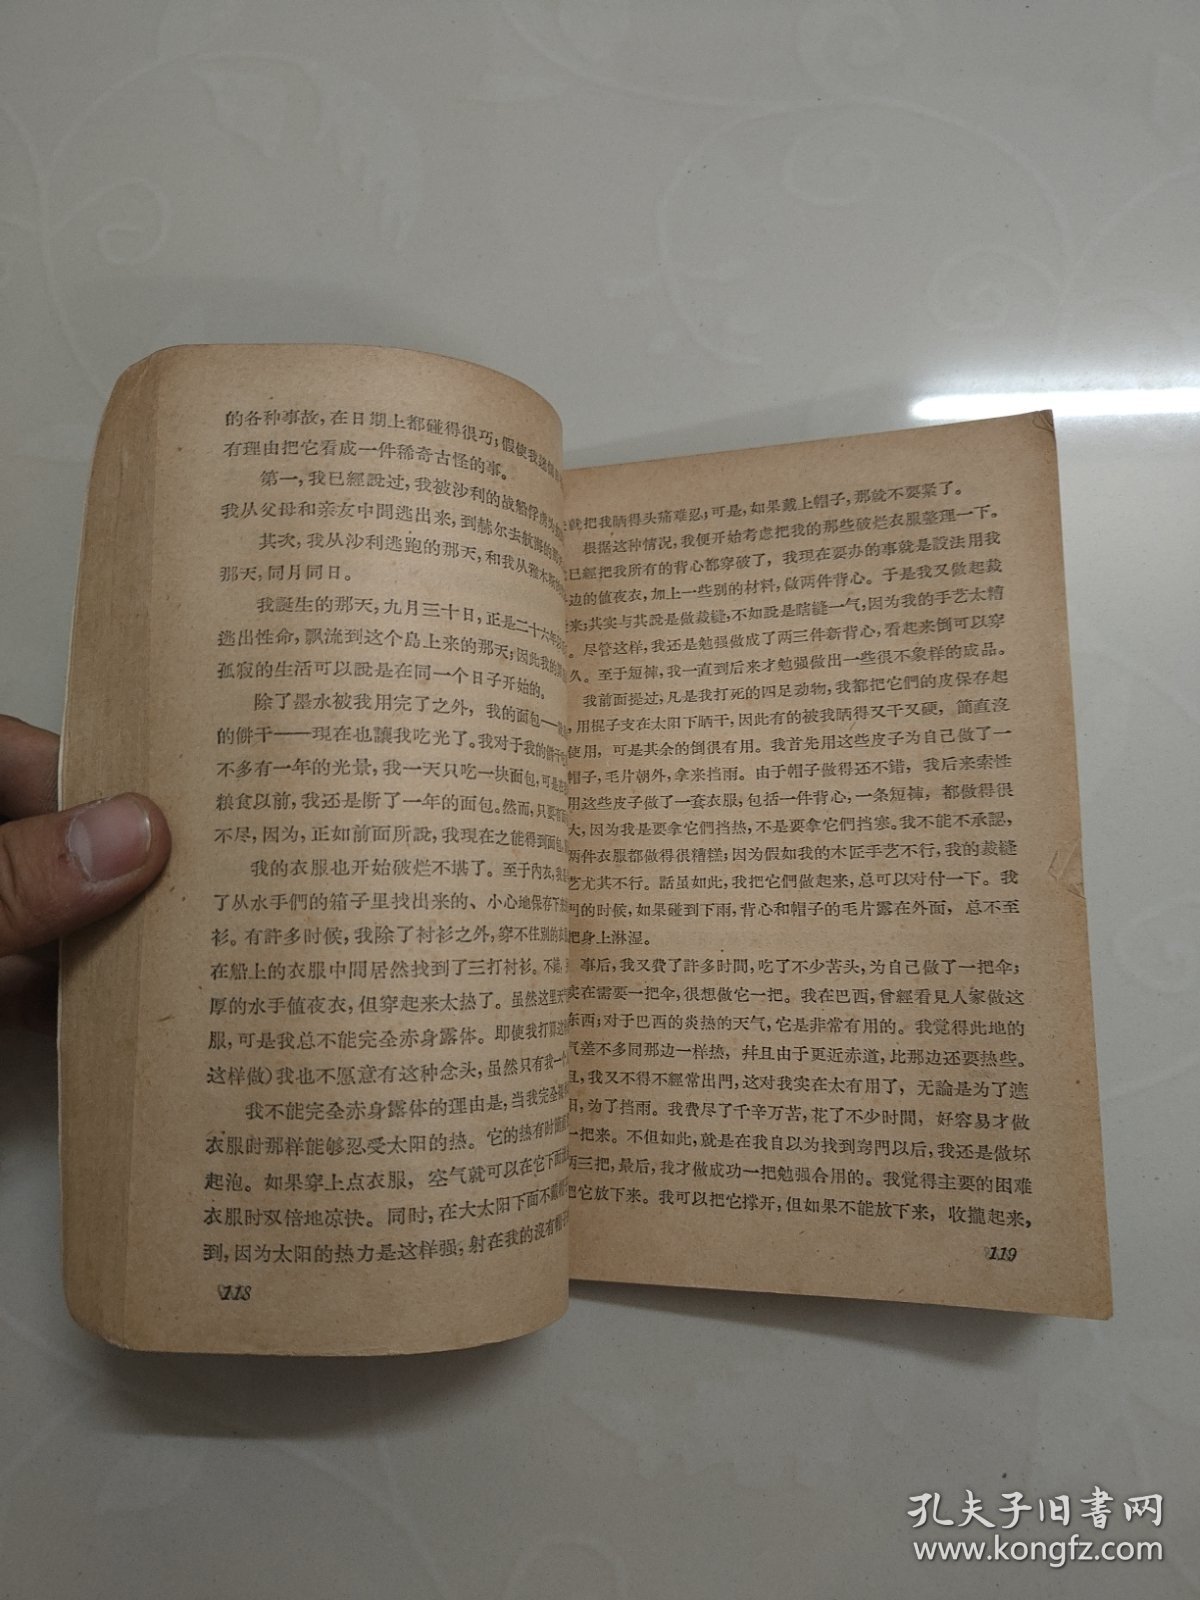 的各种事故，在日期上都碰得很巧；假使我
有理由把它看成一件稀奇古怪的事。
第一，我已經說过，我被沙利的战船俘虏
我从父母和亲友中間逃出来，到赫尔去航海的那
其次，我从沙利逃跑的那天，和我从雅木斯
那天，同月同日。
我誕生的那天，九月三十日，正是二十六年
逃出性命，飄流到这个島上来的那天；因此我的
孤寂的生活可以說是在同一个日子开始的。
除了墨水被我用完了之外，我的面包——
的餅干——現在也讓我吃光了。我对于我的餅干
不多有一年的光景，我一天只吃一块面包，可是在
粮食以前，我还是断了一年的面包。然而，只要
不尽，因为，正如前面所說，我現在之能得到面包，
我的衣服也开始破烂不堪了。至于內衣，我
了从水手們的箱子里找出来的、小心地保存下来
衫。有許多时候，我除了衬衫之外，穿不住別的衣
在船上的衣服中間居然找到了三打衬衫。不錯，
厚的水手值夜衣，但穿起来太热了。虽然这里天
服，可是我总不能完全赤身露体。即使我打算这
这样做）我也不愿意有这种念头，虽然只有我一个
我不能完全赤身露体的理由是，当我完全
衣服时那样能够忍受太阳的热。它的热有时簡直
起泡。如果穿上点衣服，空气就可以在它下面
衣服时双倍地凉快。同时，在大太阳下面不戴帽子
到，因为太阳的热力是这样强，射在我的沒有帽子
118
就把我晒得头痛难忍；可是，如果戴上帽子，那就不要紧了。
根据这种情况，我便开始考虑把我的那些破烂衣服整理一下。
已經把我所有的背心都穿破了，我現在要办的事就是設法用我
边的值夜衣，加上一些別的材料，做两件背心。于是我又做起裁
来；其实与其說是做裁縫，不如說是瞎縫一气，因为我的手艺太糟
。尽管这样，我还是勉强做成了两三件新背心，看起来倒可以穿
久。至于短褲，我一直到后来才勉强做出一些很不象样的成品。
我前面提过，凡是我打死的四足动物，我都把它們的皮保存起
，用棍子支在太阳下晒干，因此有的被我晒得又干又硬，簡直沒
使用，可是其余的倒很有用。我首先用这些皮子为自己做了一
帽子，毛片朝外，拿来挡雨。由于帽子做得还不错，我后来索性
用这些皮子做了一套衣服，包括一件背心，一条短褲，都做得很
大，因为我是要拿它們挡热，不是要拿它們挡寒。我不能不承認，
两件衣服都做得很糟糕；因为假如我的木匠手艺不行，我的裁縫
艺尤其不行。話虽如此，我把它們做起来，总可以对付一下。我
的时候，如果碰到下雨，背心和帽子的毛片露在外面，总不至
把身上淋湿。
事后，我又費了許多时間，吃了不少苦头，为自己做了一把伞；
实在需要一把伞，很想做它一把。我在巴西，曾經看見人家做这
东西；对于巴西的炎热的天气，它是非常有用的。我覚得此地的
气差不多同那边一样热，幷且由于更近赤道，比那边还要热些。
且，我又不得不經常出門，这对我实在太有用了，无論是为了遮
阳，为了挡雨。我費尽了千辛万苦，花了不少时間，好容易才做
一把来。不但如此，就是在我自以为找到窍門以后，我还是做坏
两三把，最后，我才做成功一把勉强合用的。我覚得主要的困难
把它放下来。我可以把它撑开，但如果不能放下来，收攏起来，
119
孔夫子旧书网
www.kongfz.com